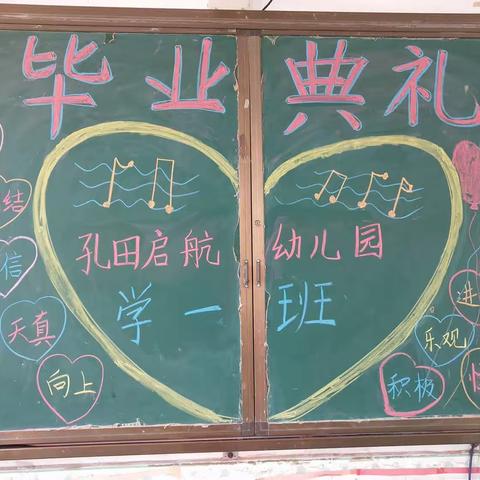 毕业典礼
孔田启航幼儿园
学一班
结
信
天真
向上
进
乐观
积极